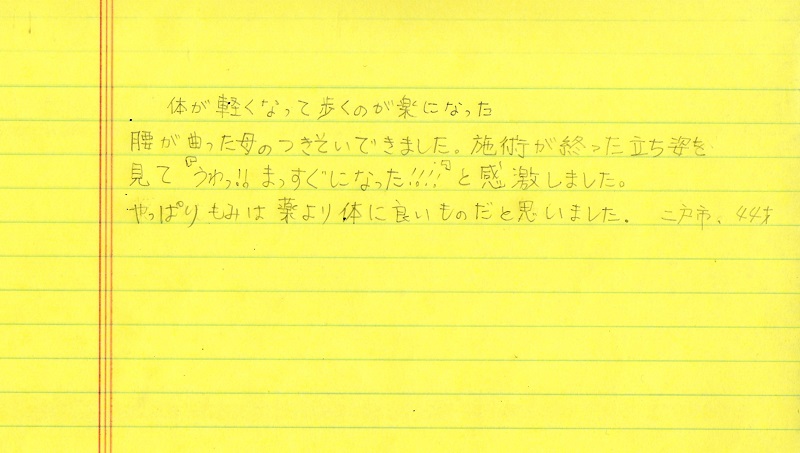 体が軽くなって歩くのが楽になった
腰が曲った母のつきそいできました。施術が終った立ち姿を
見て『うわっ!!まっすぐになった!!!!』と感激しました。
やっぱりもみは薬より体に良いものだと思いました。 二戸市、44才